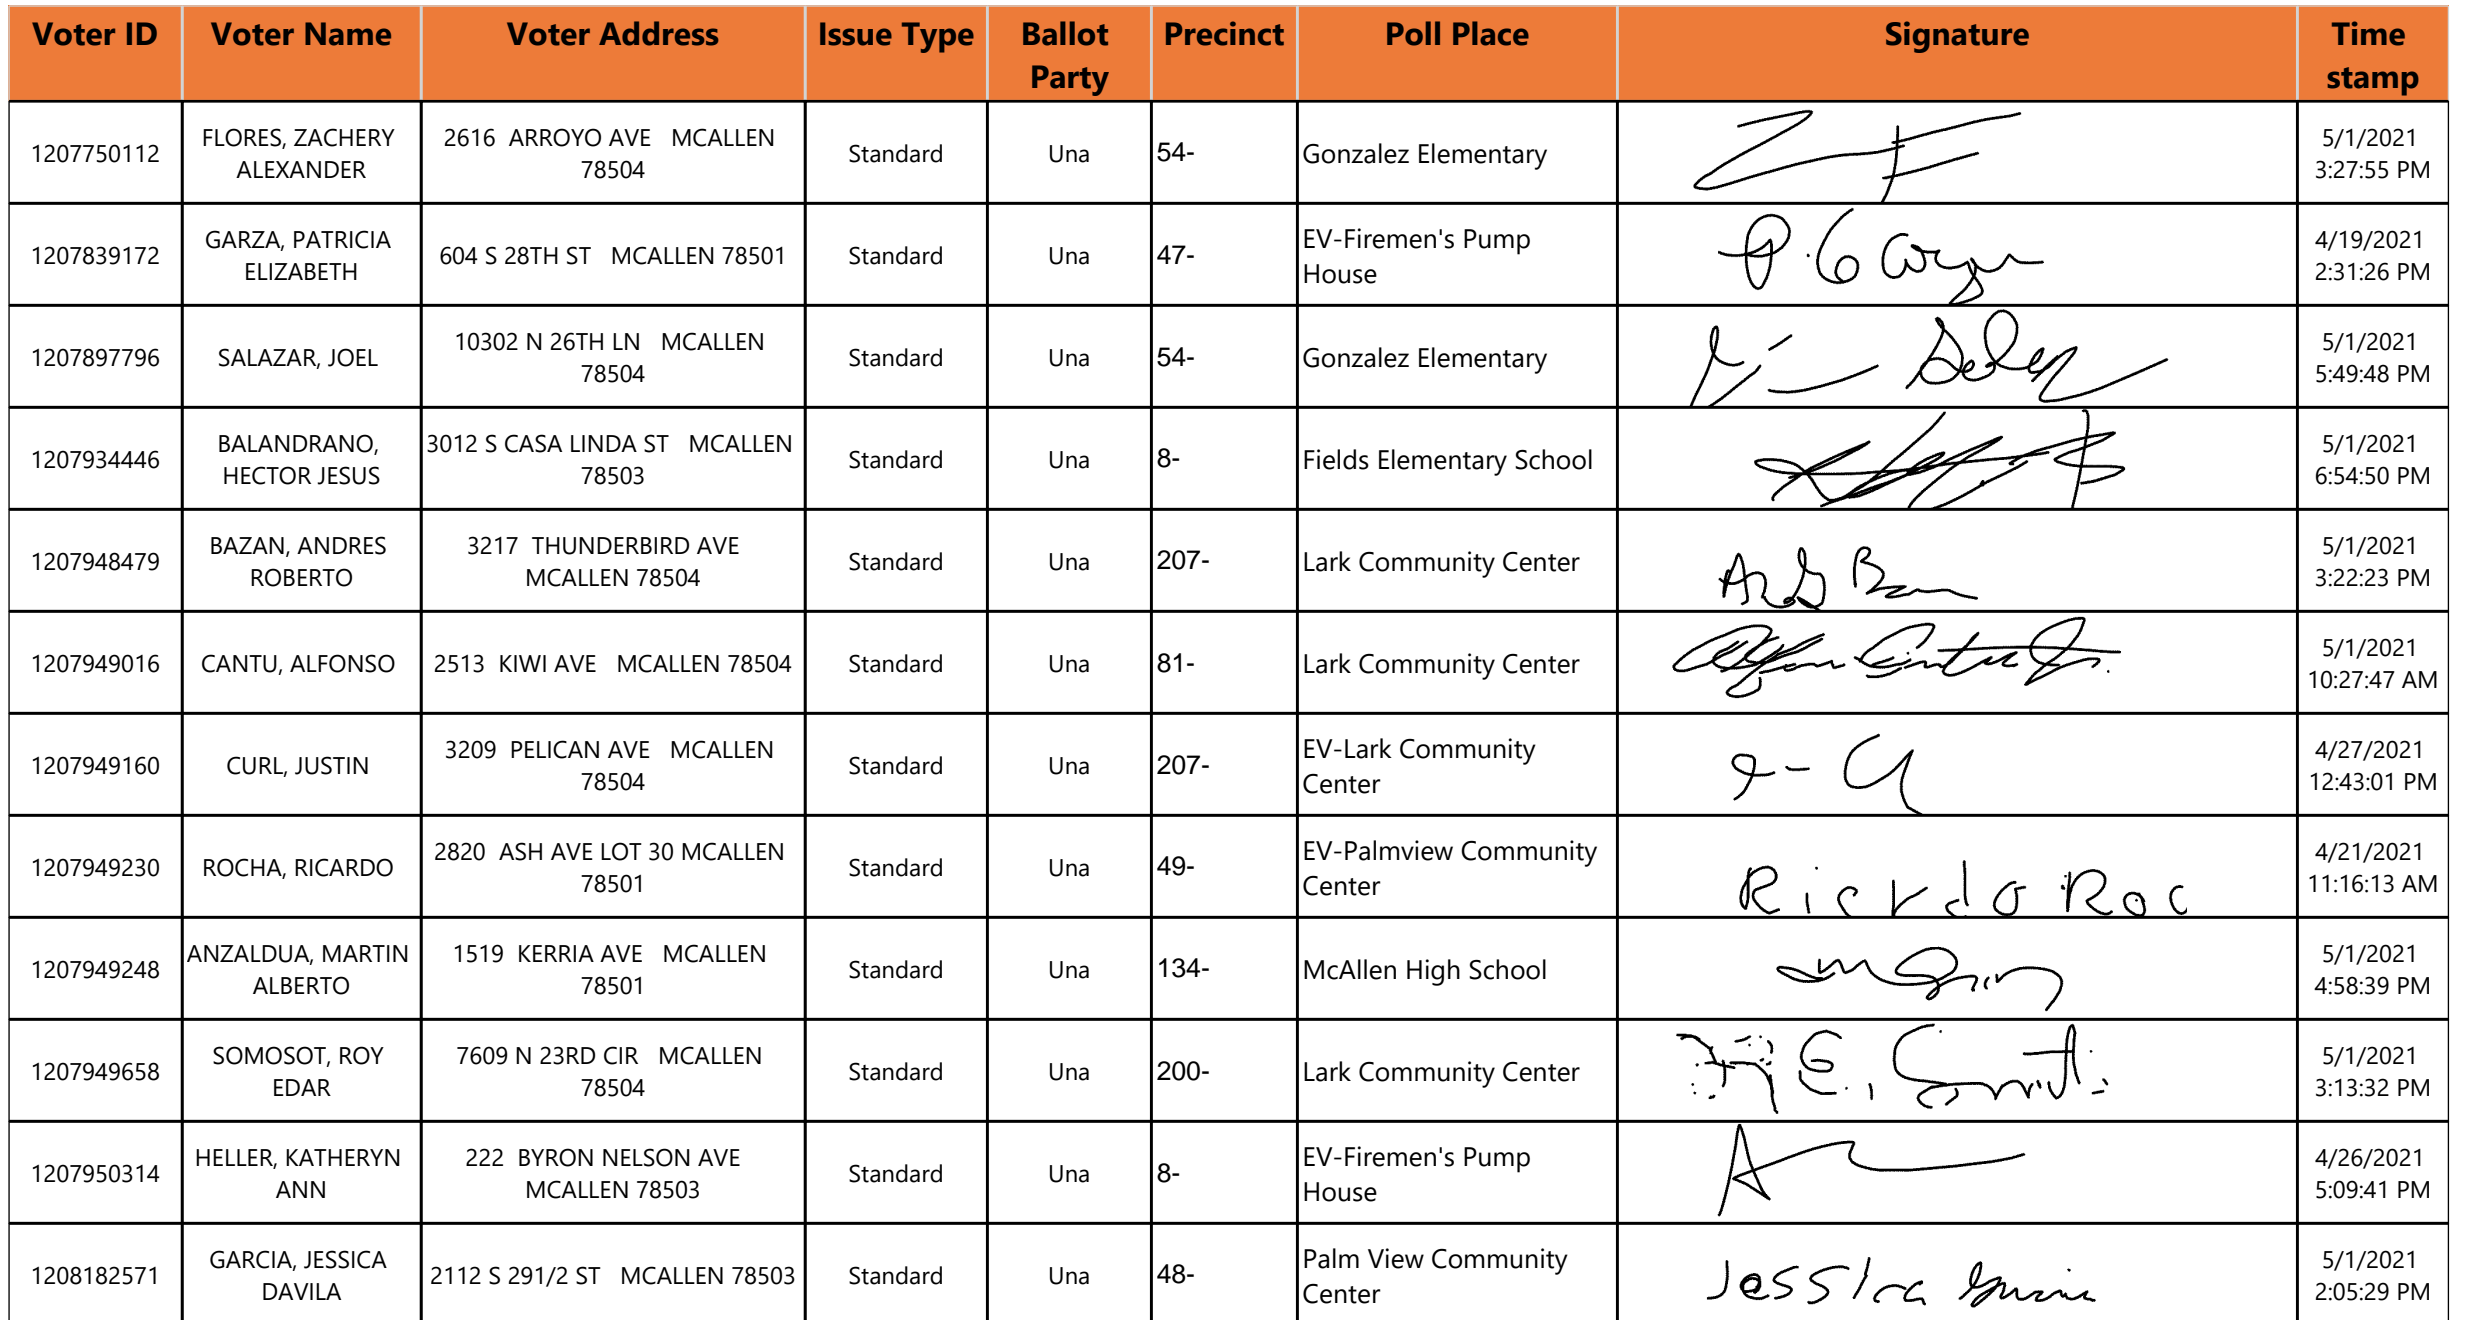 Voter ID Voter Name Voter Address Issue Type Ballot Party Precinct Poll Place Signature Time stamp
1207750112 FLORES, ZACHERY ALEXANDER 2616 ARROYO AVE MCALLEN 78504 Standard Una 54- Gonzalez Elementary 5/1/2021 3:27:55 PM
1207839172 GARZA, PATRICIA ELIZABETH 604 S 28TH ST MCALLEN 78501 Standard Una 47- EV-Firemen's Pump House 4/19/2021 2:31:26 PM
1207897796 SALAZAR, JOEL 10302 N 26TH LN MCALLEN 78504 Standard Una 54- Gonzalez Elementary 5/1/2021 5:49:48 PM
1207934446 BALANDRANO, HECTOR JESUS 3012 S CASA LINDA ST MCALLEN 78503 Standard Una 8- Fields Elementary School 5/1/2021 6:54:50 PM
1207948479 BAZAN, ANDRES ROBERTO 3217 THUNDERBIRD AVE MCALLEN 78504 Standard Una 207- Lark Community Center 5/1/2021 3:22:23 PM
1207949016 CANTU, ALFONSO 2513 KIWI AVE MCALLEN 78504 Standard Una 81- Lark Community Center 5/1/2021 10:27:47 AM
1207949160 CURL, JUSTIN 3209 PELICAN AVE MCALLEN 78504 Standard Una 207- EV-Lark Community Center 4/27/2021 12:43:01 PM
1207949230 ROCHA, RICARDO 2820 ASH AVE LOT 30 MCALLEN 78501 Standard Una 49- EV-Palmview Community Center Ricrdo Roc 4/21/2021 11:16:13 AM
1207949248 ANZALDUA, MARTIN ALBERTO 1519 KERRIA AVE MCALLEN 78501 Standard Una 134- McAllen High School 5/1/2021 4:58:39 PM
1207949658 SOMOSOT, ROY EDAR 7609 N 23RD CIR MCALLEN 78504 Standard Una 200- Lark Community Center 5/1/2021 3:13:32 PM
1207950314 HELLER, KATHERYN ANN 222 BYRON NELSON AVE MCALLEN 78503 Standard Una 8- EV-Firemen's Pump House 4/26/2021 5:09:41 PM
1208182571 GARCIA, JESSICA DAVILA 2112 S 291/2 ST MCALLEN 78503 Standard Una 48- Palm View Community Center Jessica 5/1/2021 2:05:29 PM